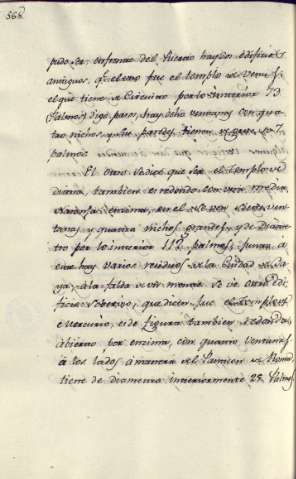 568.
pudo ser enfrente del Palacio hay dos edificios
antiguos, q.e el uno fue el templo de Venus,
el que tiene de Circuito por lo interior 73
Palmos digo pasos, hay ocho ventanas con qua-
tro nichos, y las paredes tienen de grueso 7
palmos
El otro se dice que fue el templo de
Diana, tambien es redondo con una media
naranja encima, en el se ven ocho ven-
tanas y quatro nichos grandes, y de Diame-
tro por lo interior 112 palmos, junto a
este hay varios residuos de la Ciudad de Ba-
ya, a la falda de un monte se ve otro edi-
ficio soberbio, que dicen fue el templo
de Mercurio, es de figura tambien redonda,
abierto por encima, con quatro ventanas
á los lados á manera del Panteon de Roma
tiene de diametro interiormente 28 Palmos